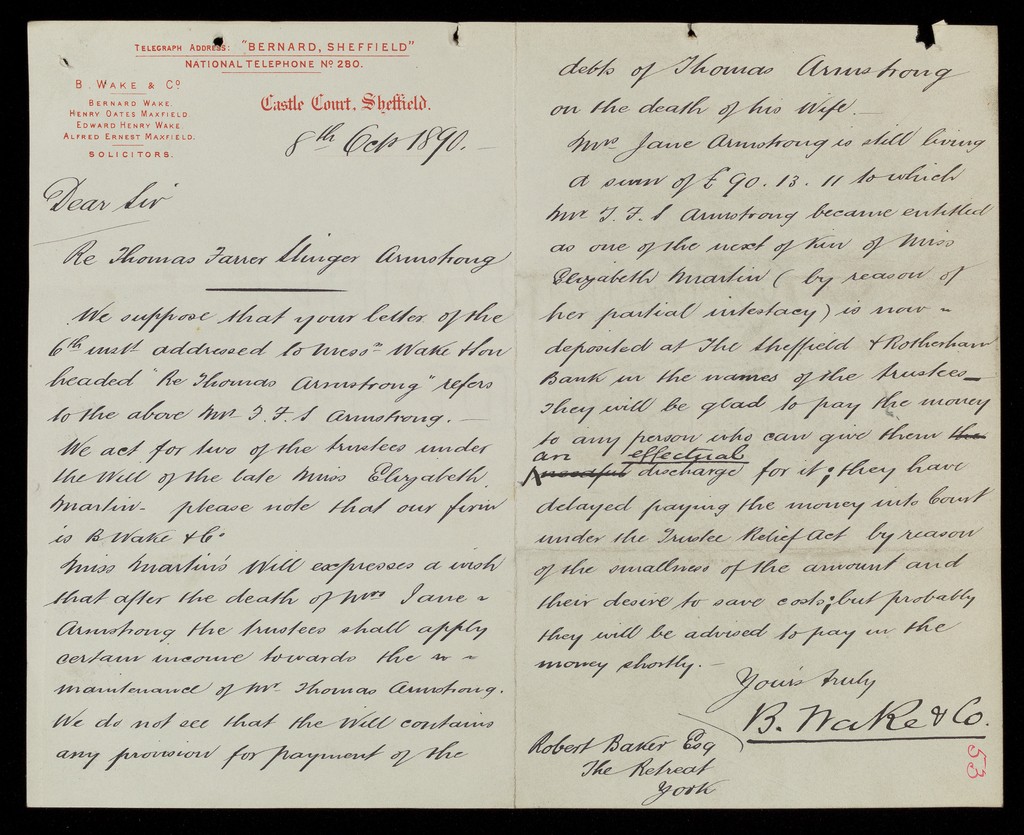 TELEGRAPH ADDRESS: "BERNARD, SHEFFIELD"
NATIONAL TELEPHONE No 280.
B. WAKE & Co.
BERNARD WAKE.
HENRY OATES MAXFIELD
EDWARD HENRY WAKE
ALFRED ERNEST MAXFIELD.
SOLICITORS.
Castle Court, Sheffield.
8th Oct 1890.
Dear Sir
Re Thomas Farrer Slinger Armstrong
We suppose that your letter of the
6th inst addressed to Messrs Wake & Son
headed "Re Thomas Armstrong" refers
to the above Mr T. F. S Armstrong. —
We act for two of the trustees under
the Will of the late Miss Elizabeth
Martin - please note that our firm
is B Wake & Co
Miss Martin's Will expresses a wish
that after the death of Mrs Jane
Armstrong the trustees shall apply
certain income towards the
maintenance of Mr Thomas Armstrong.
We do not see that the Will contains
any provision for payment of the
debts of Thomas Armstrong
on the death of his Wife. —
Mrs Jane Armstrong is still living
A sum of £90. 13. 11 to which
Mr T. F. S Armstrong became entitled
as one of the next of Kin of Miss
Elizabeth Martin (by reason of
her partial intestacy) is now
deposited at The Sheffield & Rotherham
Bank in the names of the trustees —
They will be glad to pay the money
to any person who can give them the
an effectual
needful discharge for it; they have
delayed paying the money into Court
under the Trustee Relief Act by reason
of the smallness of the amount and
their desire to save costs; but probably
they will be advised to pay in the
money shortly. —
Yours truly
B. Wake & Co.
Robert Baker Esq
The Retreat
York
53